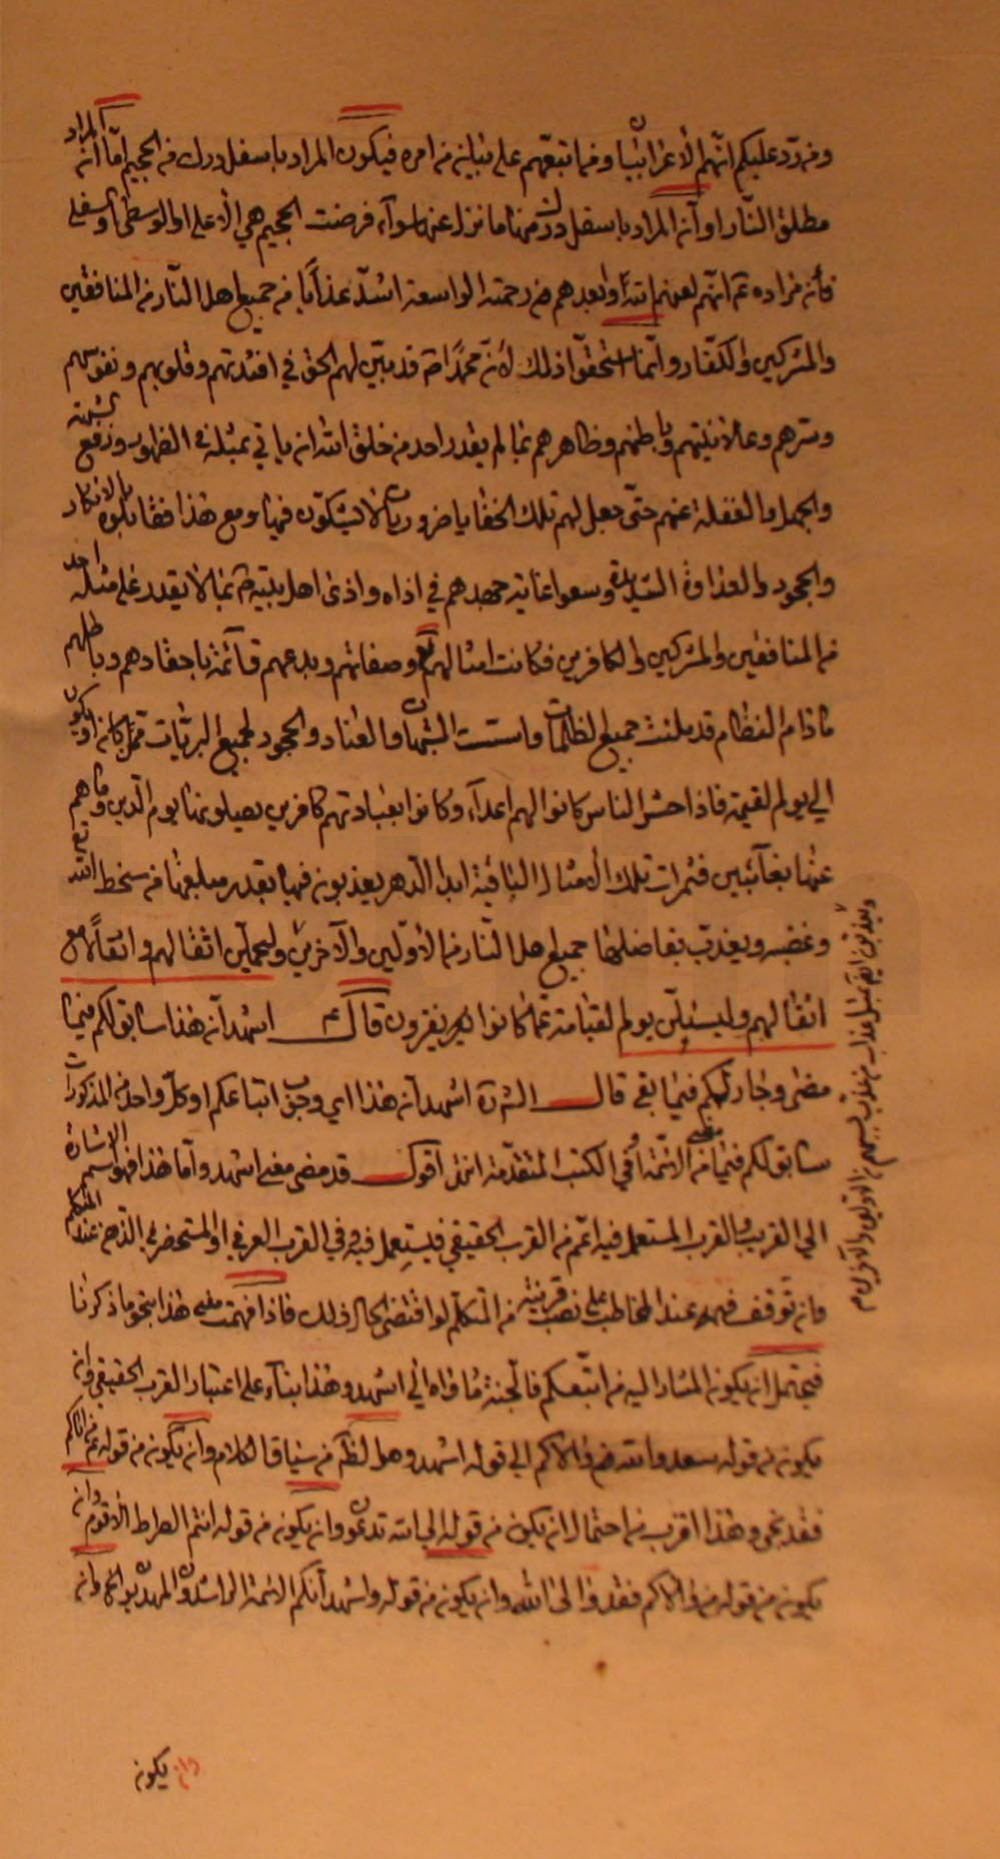 ومن ردّ عليكم انّهم الأعرابيّان ومن اتبعهم على تباين من امره فيكون المراد باسفل درك من الجحيم امّا انّ المراد
مطلق النّار او أنّ المراد باسفل درك منها ما نزل عنها سوآء فرضت الجحيم هي الأعلى او الوسطى او السفلى
فأن مراده ع انّهم لعنهم الله وابعدهم من رحمته الواسعة اشدّ عذاباً من جميع اهل النّار من المنافقين
والمشركين والكفّار وانّما استحقّوا ذلك لأنّ محمّداً ص قد بيّن لهم الحق في افئدتهم وقلوبهم ونفوسهم
وسرّهم وعلانيتهم وباطنهم وظاهرهم بما لم يقدر احد من خلق الله ان ياتي بمثله في الظهور ورفع الشبهة
والجهل والغفلة عنهم حتّى جعل لهم تلك الخفايا ضروريّات لا يشكّون فيها ومع هذا فقابلوه بالانكار
والجحود والعداوة الشديدة وسعوا غاية جهدهم في اذاه واذى اهل بيته ص بما لا يقدر على مثله احد
من المنافقين والمشركين والكافرين فكانت امثالهم وصفاتهم وبدعهم قآئمة باحقادهم وباطلهم
ما دام النظام قد ملئت جميع الظلمات واسست الشبهات والعناد والجحود لجميع البريّات ممّن كان او يكون
الى يوم القيمة فاذا حشر الناس كانوا لهم اعدآء وكانوا بعبادتهم كافرين يصلونها يوم الّدين وما هم
عنها بغآئبين فثمرات تلك الأمثال الباقية ابد الّدهر يعذبون فيها بقدر مبلغها من سخط الله تع
وغضبه ويعذب بفاضلها جميع اهل النّار من الأوّلين والآخرين وليحملنّ اثقالهم واثقالاً مع
اثقالهم وليسئلنّ يوم القيامة عمّا كانوا يفترون قال ع اشهد أنّ هذا سابق لكم فيما
مضى وجار لكم فيما بقى قال الشرح اشهد أنّ هذا اي وجوب اتباعكم او كلّ واحد من المذكورات
سابق لكم فيما مضى من الائمّة او في الكتب المتقدّمة انتهى اقول قد مضى معنى اشهد وأما هذا فهو اسم الاشارة
الى القريب والقرب المستعمل فيه اعمّ من القرب الحقيقي فيستعمل فيه وفي القرب العرفي او المستحضر في الذهن عند المتكلم
وان توقف فهمه عند المخاطب على نصب قرينة من المتكلّم لو اقتضى الحال ذلك فاذا فهمت معنى هذا بنحو ما ذكرنا
فيحتمل ان يكون المشار اليه من اتّبعكم فالجنة مأواه الى اشهد وهذا بنآء على اعتبار القرب الحقيقي وان
يكون من قوله سعد والله من والاكم الى قوله اشهد وهو الظّاهر من سياق الكلام وان يكون من قوله من اتاكم
فقد نجى وهذا اقرب من احتمال ان يكون من قوله الى الله تدعون وان يكون من قوله انتم الصراط الأقوم وان
يكون من قوله من والاكم فقد والى الله وان يكون من قوله واشهد أنكم الائمة الراشدون المهديون الخ وان
وان يكون